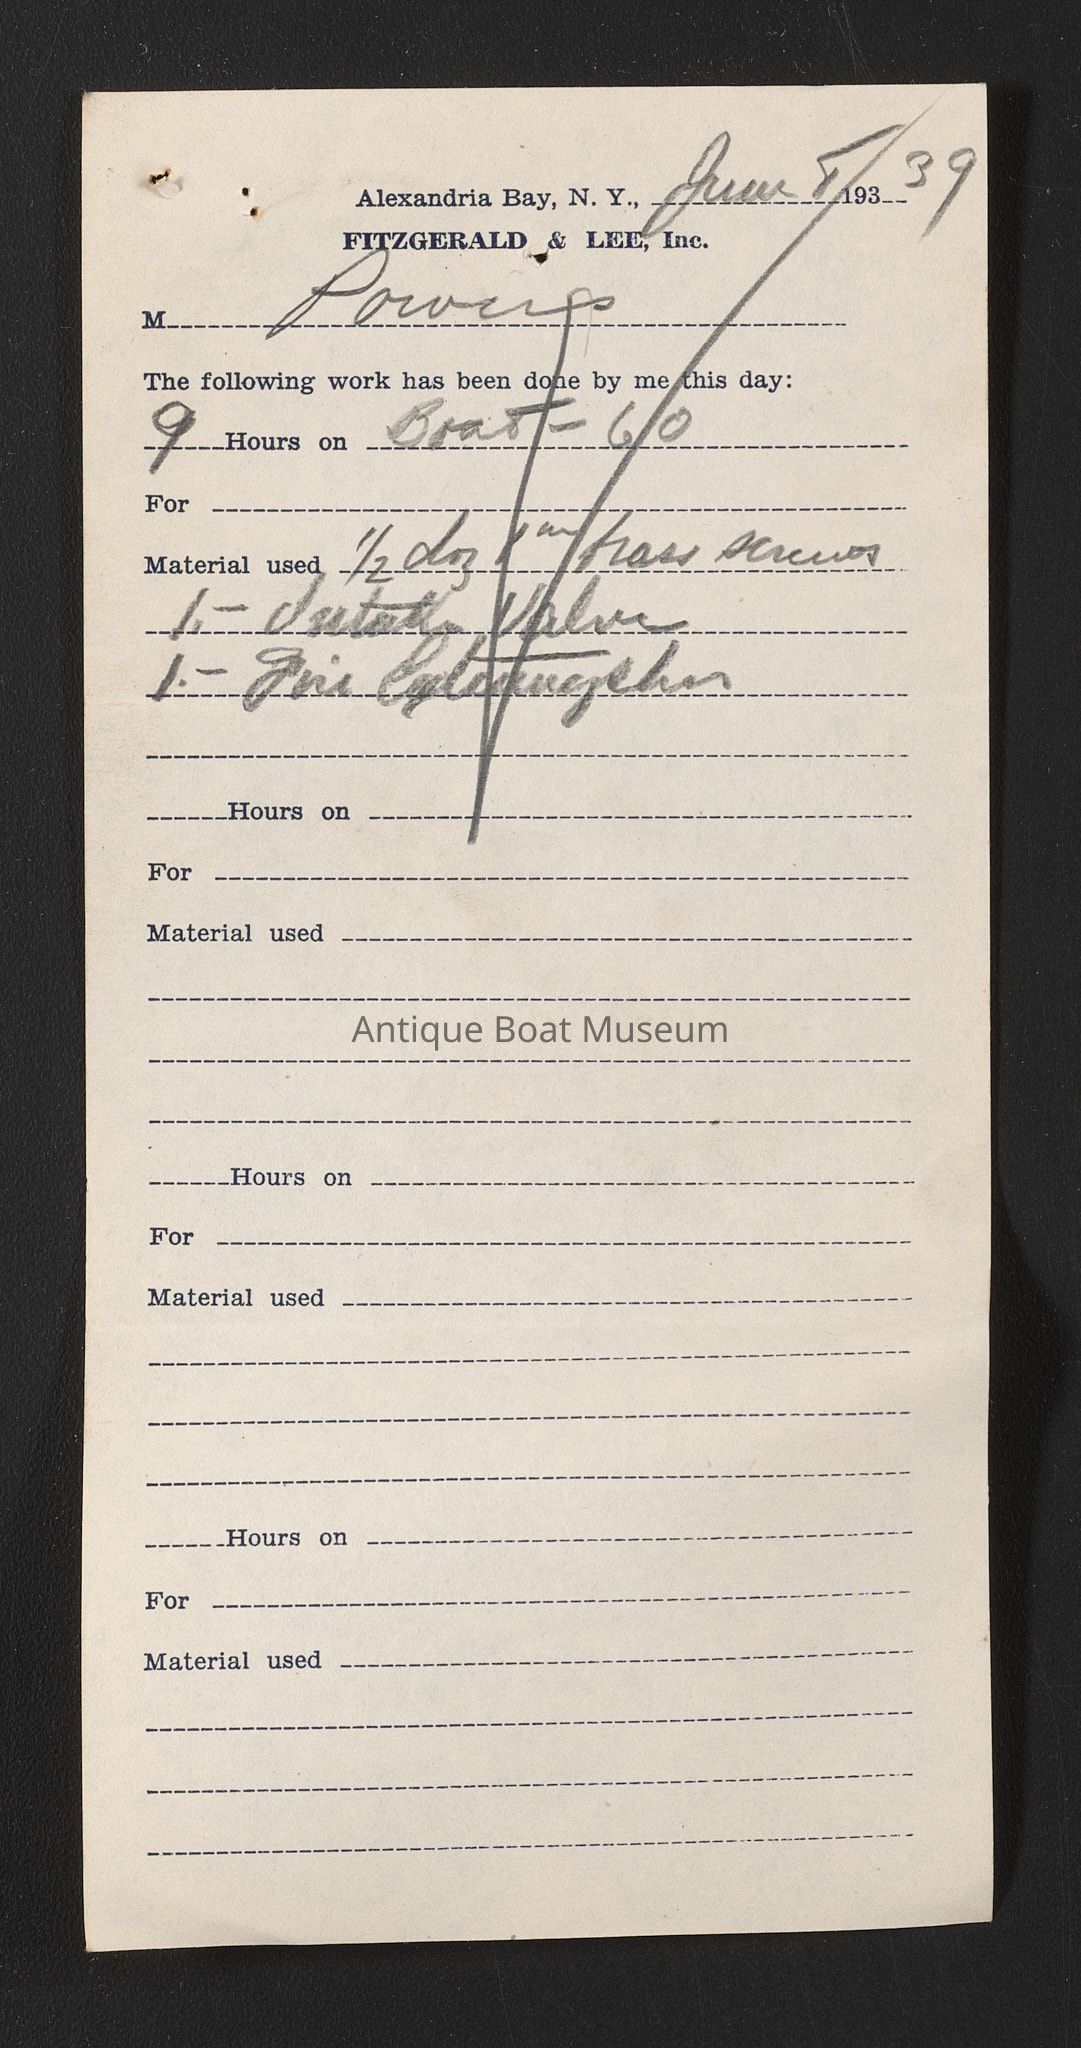 Alexandria Bay, N. Y., June 8 193 39
FITZGERALD & LEE, Inc.
M Powers
The following work has been done by me this day:
9 Hours on Boat - 60
For
Material used 1/2 doz 1" brass screws
1.- Intake Valve
1.- Fire
Hours on
For
Material used
Antique Boat Museum
Hours on
For
Material used
Hours on
For
Material used